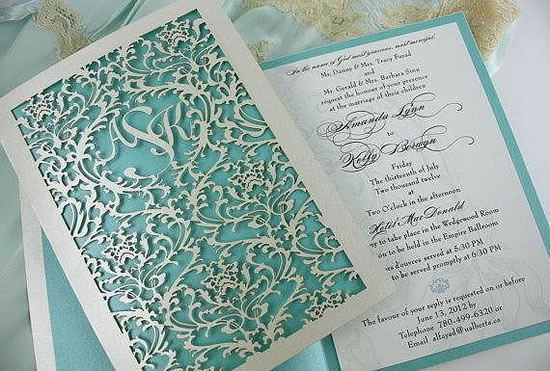 In the name of God most gracious, most merciful.
Mr. Danny & Mrs. Tracy Fayad
and
Mr. Gerald & Mrs. Barbara Sinn
request the honour of your presence
at the marriage of their children
Amanda Lynn
to
Kolly Berwyn
Friday
The thirteenth of July
Two thousand twelve
at
Two O'clock in the afternoon
Hotel MacDonald
y to take place in the Wedgewood Room
on to be held in the Empire Ballroom
ours served at 5:30 PM
to be served promptly at 6:30 PM
The favour of your reply is requested on or before
June 13, 2012 by
Telephone 780-499-6320 or
Email: alfayad@ualberta.ca